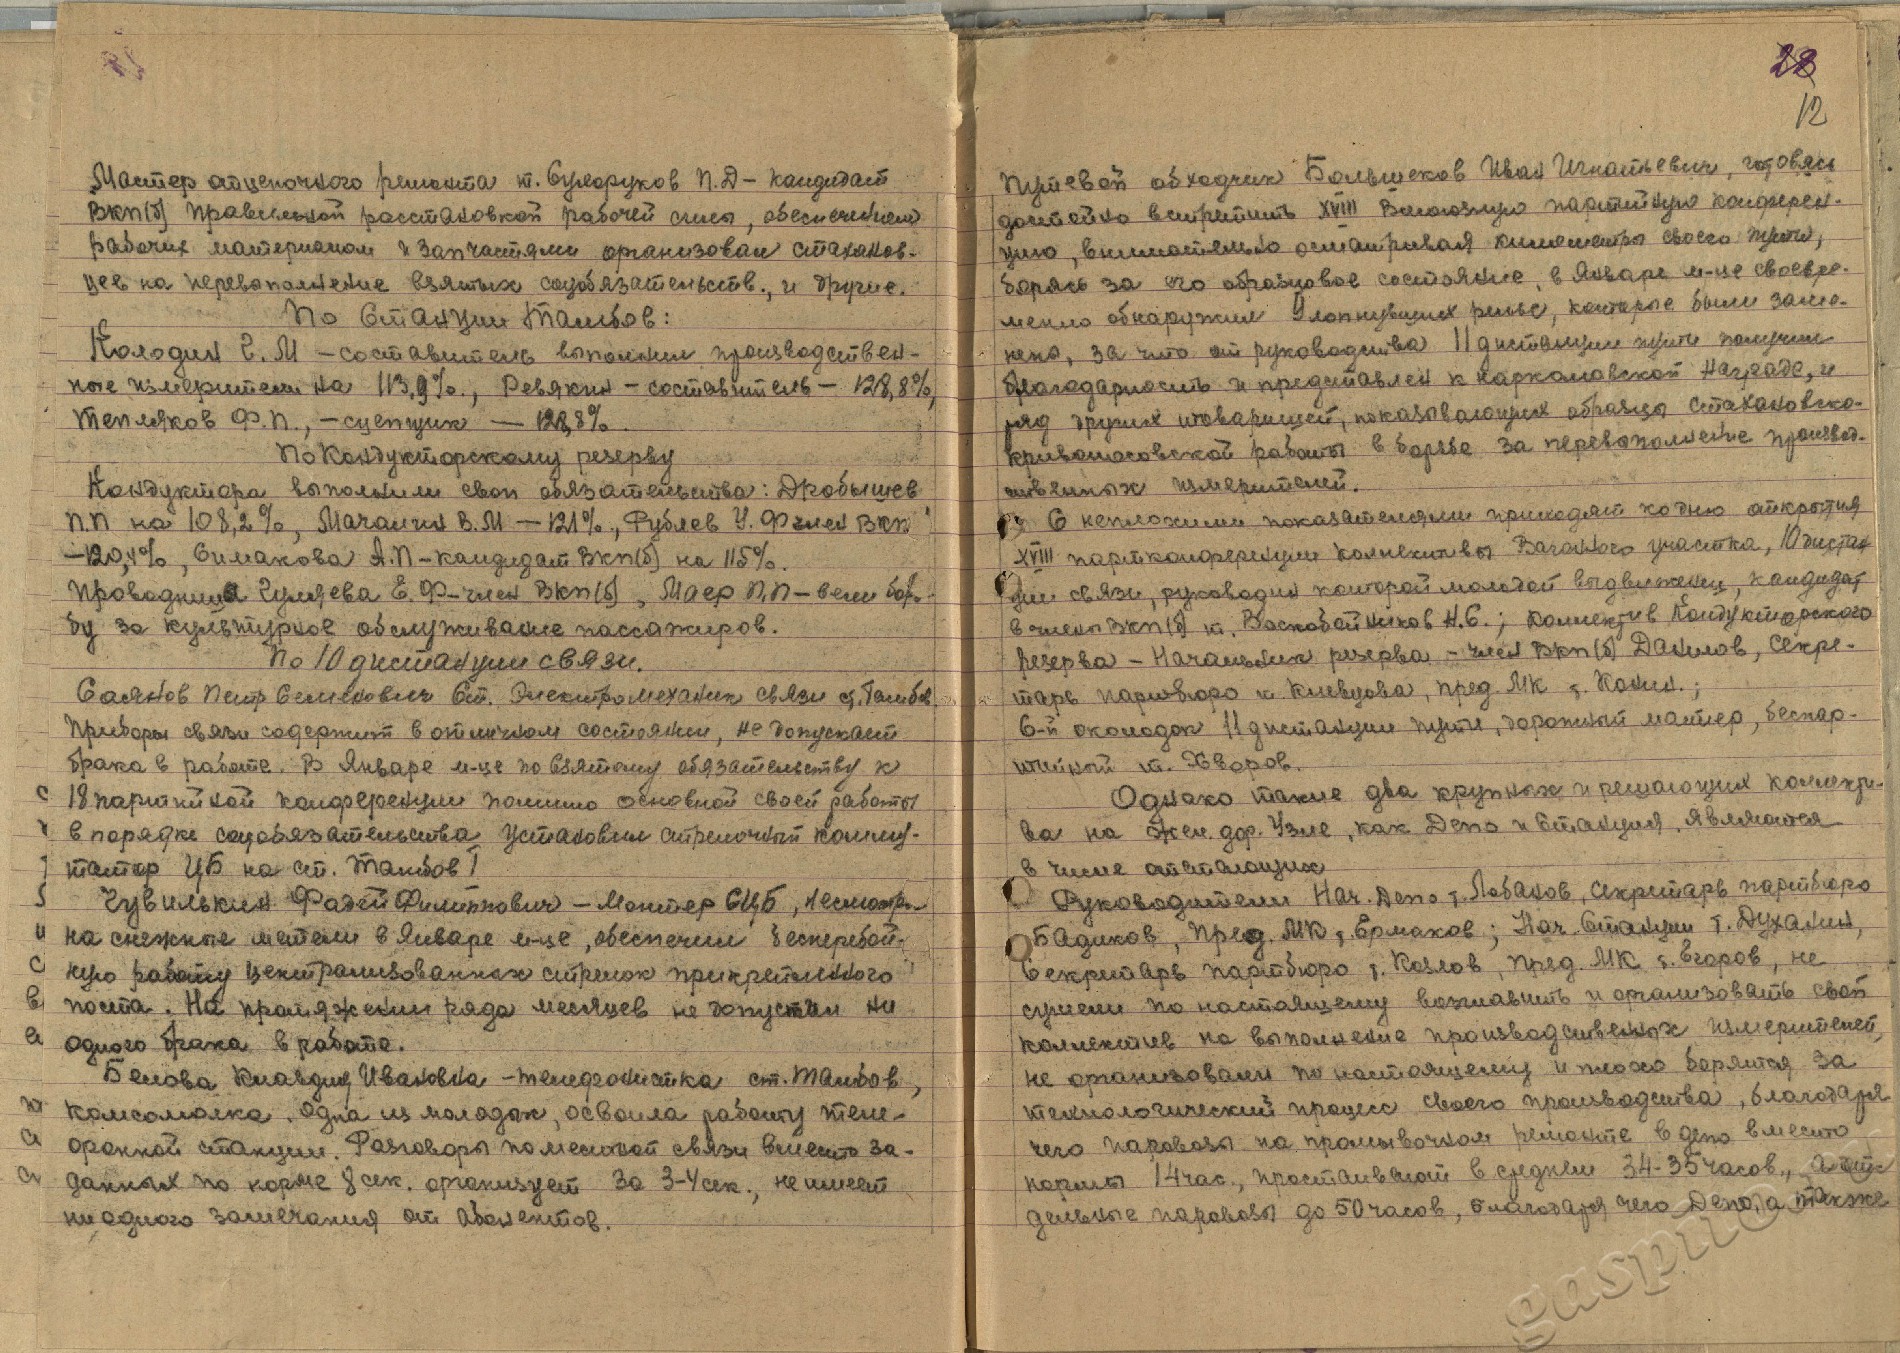 Мастер отцепочного ремонта т. Сухоруков П.Д – кандидат
ВКП(б) правильной расстановкой рабочей силы, обеспечением
рабочих материалом и запчастями организовал стаханов-
цев на перевополнение взятых соцобязательств., и другие.
По Станции Тамбов:
Колодин Е. М – составитель выполнил производствен-
ные измерители на 113,9%., Ревякин – составитель – 128,8%,
Тепляков Ф.П., – сцепщик – 128,8%.
По Кондукторскому резерву
Кондуктора выполнили свои обязательства: Дробышев
П.П на 108,2%, Мачалин В.М – 121%., Рублев У. Ф член ВКП
– 120,4%, Симакова А.П – кандидат ВКП(б) на 115%.
Проводница Гуляева Е. Ф – член ВКП(б), Маер П.П – вели борь-
бу за культурное обслуживание пассажиров.
По 10 дистанции связи.
Саянов Петр Семенович Ст. Электромеханик связи ст. Тамбов.
Приборы связи содержит в отличном состоянии, не допускает
брака в работе. В Январе м-це по взятому обязательству к
18 партийной конференции помимо основной своей работы
в порядке соцобязательства установил стрелочный комму-
татор ЦБ на ст. Тамбов I
Чувилькин Фадей Филиппович – Монтер СЦБ, несмотря
на снежные метели в Январе м-це, обеспечил бесперебой-
ную работу централизованных стрелок прикрепленного
поста. На протяжении ряда месяцев не допустил ни
одного брака в работе.
Белова Клавдия Ивановна – телефонистка ст. Тамбов,
комсомолка. одна из молодых, освоила работу теле-
фонной станции. Разговоры по местной связи вместо за-
данных по норме 8 сек. организует за 3-4 сек., не имеет
ни одного замечания от абонентов.
28
12
Путевой обходчик Большеков Иван Игнатьевич, готовясь
достойно встретить XVIII Всесоюзную партийную конферен-
цию, внимательно осматривая километры своего пути,
борясь за его образцовое состояние, в Январе м-це своевре-
менно обнаружил 9 лопнувших рельс, которые были заме-
нено, за что от руководства 11 дистанции пути получил
благодарность и представлен к наркомовской награде, и
ряд других товарищей, показывающих образцы стахановско-
кривоносовской работы в борьбе за перевополнение производ-
ственных измерителей.
С неплохими показателями приходят ко дню открытия
XVIII партконференции коллективы Вагонного участка, 10 дистан
ции связи, руководим которой молодой выдвиженец, кандидат
в члены ВКП(б) т. Воскобойников Н.С.; коллектив Кондукторского
резерва – Начальник резерва – член ВКП(б) Данилов, Секре-
тарь партбюро т Клевцова, пред. МК т. Конин.;
6-й околодок 11 дистанции пути, дорожный мастер, беспар-
тийный т. Хворов.
Однако такие два крупных и решающих коллекти-
ва на жел. дор. Узле, как Депо и Станция, являются
в числе отстающих
Руководители Нач. Депо т. Лобанов, секретарь партбюро
Бадиков, Пред. МК т. Ермаков; Нач. Станции т. Духанин,
Секретарь партбюро т. Козлов, пред. МК т. Егоров, не
сумели по настоящему возглавить и организовать свой
коллектив на выполнение производственных измерителей,
не организовали по настоящему и плохо борятся за
технологический процесс своего производства, благодаря
чего паровозы на промывочном ремонте в депо вместо
нормы 14 час., простаивают в среднем 34-35 часов., а от-
дельные паровозы до 50 часов, благодаря чего Депо, а также
gaspito